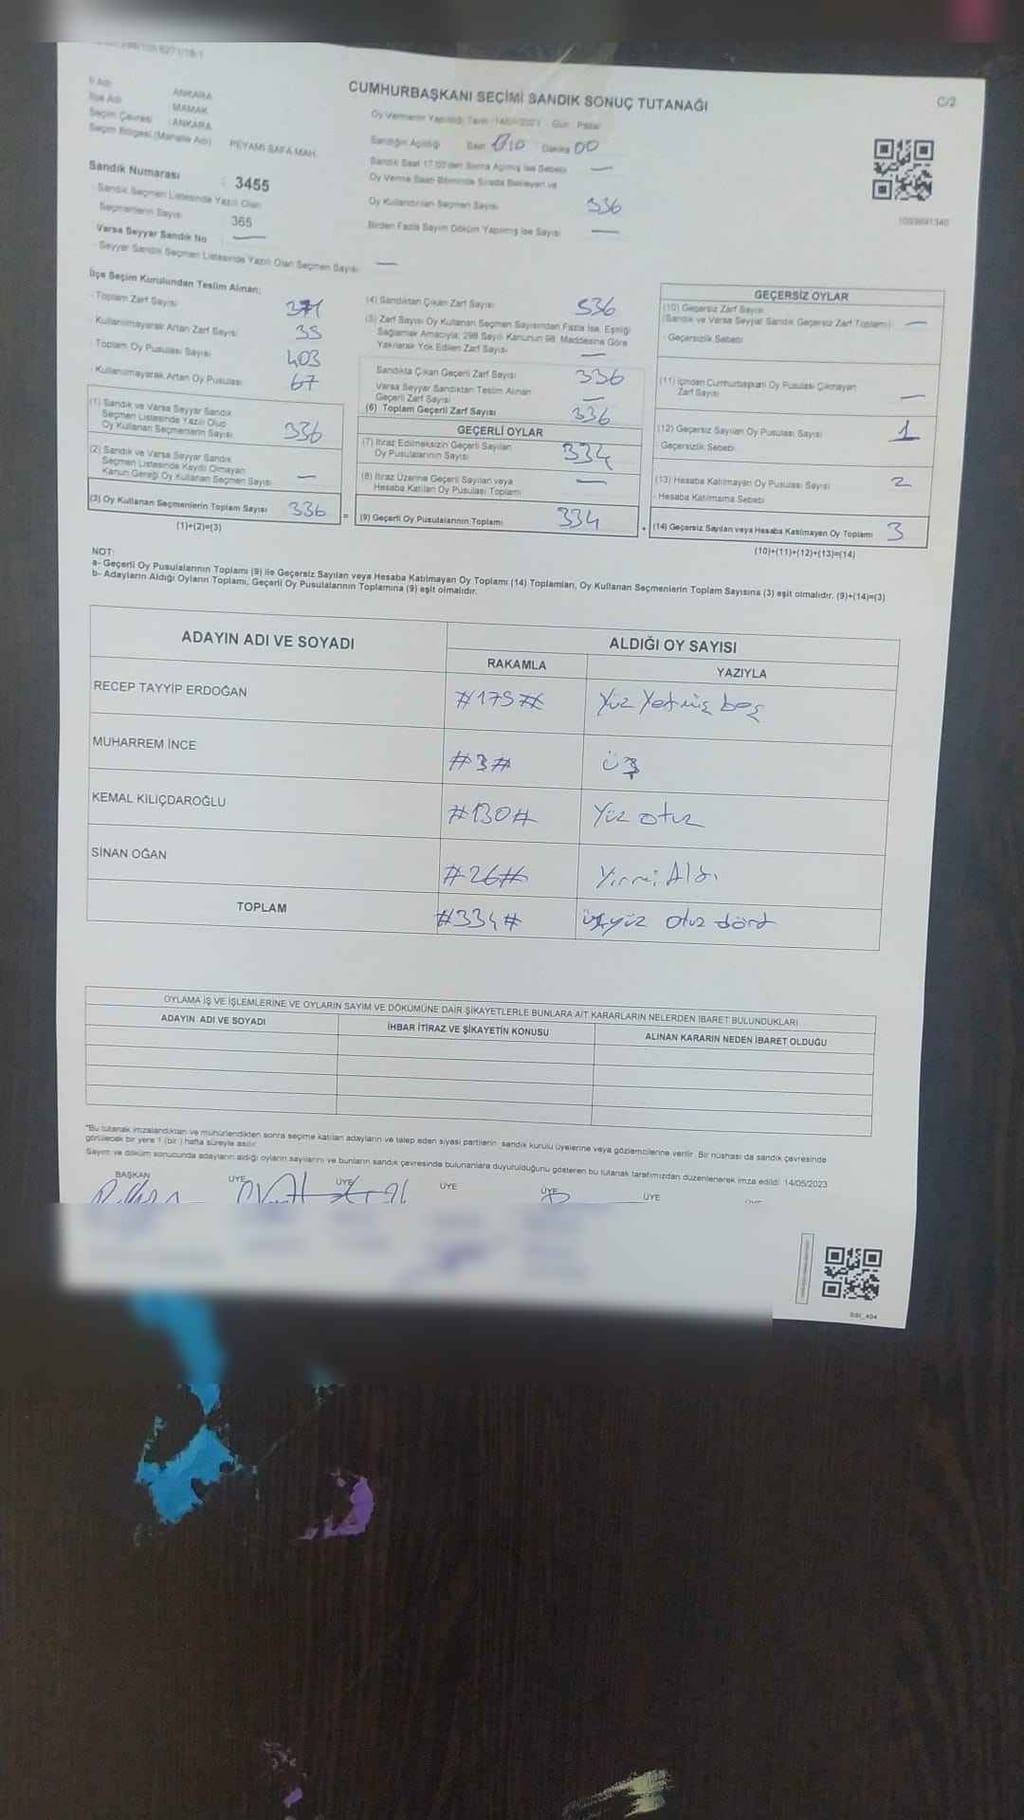 CUMHURBAŞKANI SEÇİMİ SANDIK SONUÇ TUTANAĞI
C/2
İl Adı ANKARA
İlçe Adı MAMAK
Seçim Çevresi : ANKARA
Seçim Bölgesi (Mahalle Adı) PEYAMİ SAFA MAH.
Sandık Numarası : 3455
Sandık Seçmen Listesinde Yazılı Olan
Seçmenlerin Sayısı 365
Varsa Seyyar Sandık No —
Seyyar Sandık Seçmen Listesinde Yazılı Olan Seçmen Sayısı —
Oy Vermenin Yapıldığı Tarih Gün : Pazar
Sandığın Açıldığı Saat Dakika 00
Sandık Saat 17.00'den Sonra Açılmış İse Sebebi —
Oy Verme Saati Bitiminde Sırada Bekleyen ve
Oy Kullandırılan Seçmen Sayısı 336
Birden Fazla Sayım Döküm Yapılmış İse Sayısı —
İlçe Seçim Kurulundan Teslim Alınan;
Toplam Zarf Sayısı 371
Kullanılmayarak Artan Zarf Sayısı 35
Toplam Oy Pusulası Sayısı 403
Kullanılmayarak Artan Oy Pusulası 67
(1) Sandık ve Varsa Seyyar Sandık
Seçmen Listesinde Yazılı Olup
Oy Kullanan Seçmenlerin Sayısı 336
(2) Sandık ve Varsa Seyyar Sandık
Seçmen Listesinde Kayıtlı Olmayan
Kanun Gereği Oy Kullanan Seçmen Sayısı —
(3) Oy Kullanan Seçmenlerin Toplam Sayısı 336
(1)+(2)=(3)
(4) Sandıktan Çıkan Zarf Sayısı 336
(5) Zarf Sayısı Oy Kullanan Seçmen Sayısından Fazla İse, Eşitliği
Sağlamak Amacıyla; 298 Sayılı Kanunun 98. Maddesine Göre
Yakılarak Yok Edilen Zarf Sayısı —
Sandıkta Çıkan Geçerli Zarf Sayısı 336
Varsa Seyyar Sandıktan Teslim Alınan
Geçerli Zarf Sayısı —
(6) Toplam Geçerli Zarf Sayısı 336
GEÇERLİ OYLAR
(7) İtiraz Edilmeksizin Geçerli Sayılan
Oy Pusulalarının Sayısı 334
(8) İtiraz Üzerine Geçerli Sayılan veya
Hesaba Katılan Oy Pusulası Toplamı —
(9) Geçerli Oy Pusulalarının Toplamı 334
GEÇERSİZ OYLAR
(10) Geçersiz Zarf Sayısı
(Sandık ve Varsa Seyyar Sandık Geçersiz Zarf Toplamı) —
Geçersizlik Sebebi
(11) İçinden Cumhurbaşkanı Oy Pusulası Çıkmayan
Zarf Sayısı —
(12) Geçersiz Sayılan Oy Pusulası Sayısı 1
Geçersizlik Sebebi
(13) Hesaba Katılmayan Oy Pusulası Sayısı 2
Hesaba Katılmama Sebebi
(14) Geçersiz Sayılan veya Hesaba Katılmayan Oy Toplamı 3
(10)+(11)+(12)+(13)=(14)
NOT:
a- Geçerli Oy Pusulalarının Toplamı (9) ile Geçersiz Sayılan veya Hesaba Katılmayan Oy Toplamı (14) Toplamları, Oy Kullanan Seçmenlerin Toplam Sayısına (3) eşit olmalıdır. (9)+(14)=(3)
b- Adayların Aldığı Oyların Toplamı, Geçerli Oy Pusulalarının Toplamına (9) eşit olmalıdır.
ADAYIN ADI VE SOYADI ALDIĞI OY SAYISI
RAKAMLA YAZIYLA
RECEP TAYYİP ERDOĞAN #175# Yüz Yetmiş beş
MUHARREM İNCE #3# üç
KEMAL KILIÇDAROĞLU #130# Yüz otuz
SİNAN OĞAN #26# Yirmi Altı
TOPLAM #334# üçyüz otuz dört
OYLAMA İŞ VE İŞLEMLERİNE VE OYLARIN SAYIM VE DÖKÜMÜNE DAİR ŞİKAYETLERLE BUNLARA AİT KARARLARIN NELERDEN İBARET BULUNDUKLARI
ADAYIN ADI VE SOYADI İHBAR İTİRAZ VE ŞİKAYETİN KONUSU ALINAN KARARIN NEDEN İBARET OLDUĞU
*Bu tutanak imzalandıktan ve mühürlendikten sonra seçime katılan adayların ve talep eden siyasi partilerin sandık kurulu üyelerine veya gözlemcilerine verilir. Bir nüshası da sandık çevresinde
görülecek bir yere 1 (bir) hafta süreyle asılır.
Sayım ve döküm sonucunda adayların aldığı oyların sayılarını ve bunların sandık çevresinde bulunanlara duyurulduğunu gösteren bu tutanak tarafımızdan düzenlenerek imza edildi. 14/05/2023
BAŞKAN ÜYE ÜYE ÜYE ÜYE ÜYE